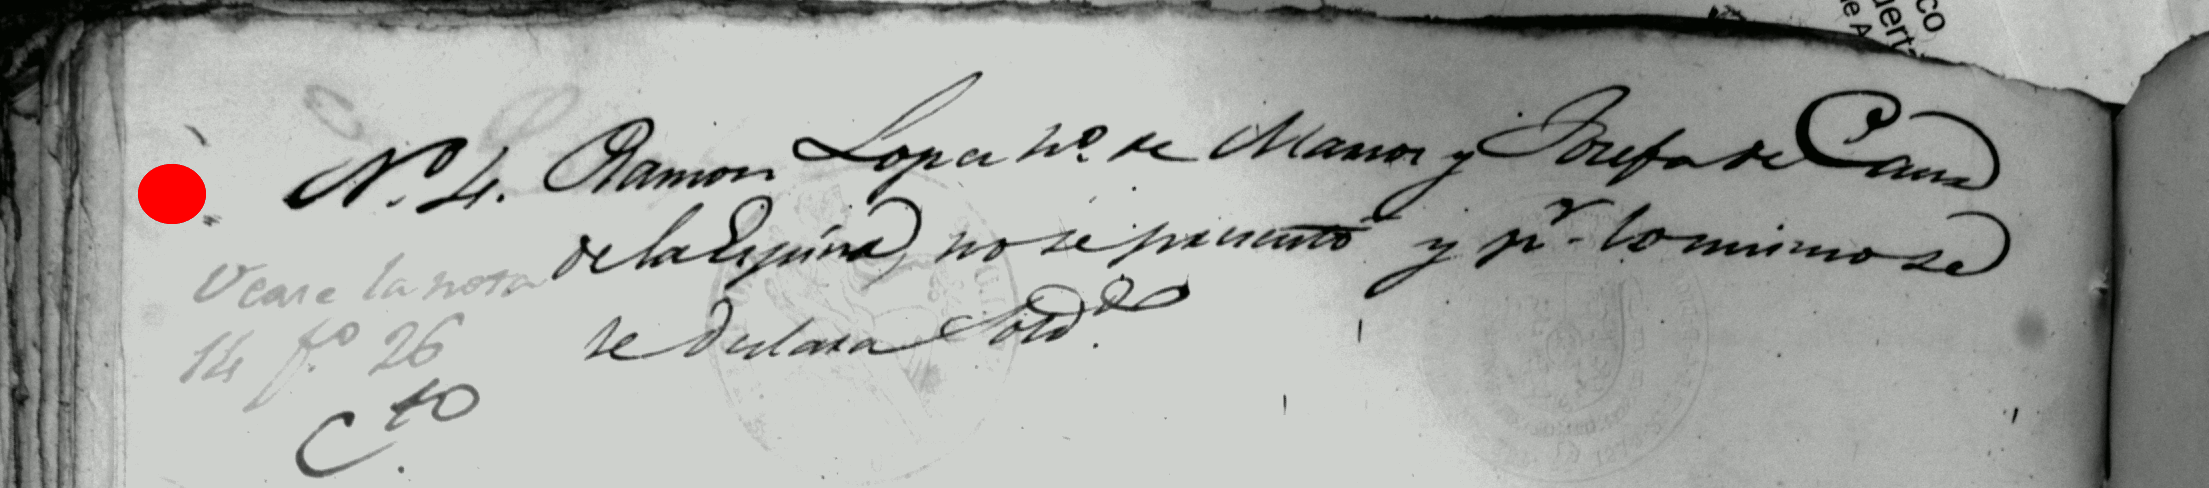 co
uert
e A
Nº. 4. Ramon Lopez hº. de Manor y Josefa de Cana
de la Espina, no se presentó y pr. lo mismo se
se declara Sold.do
Vease la nota
14 fº 26
Cto.